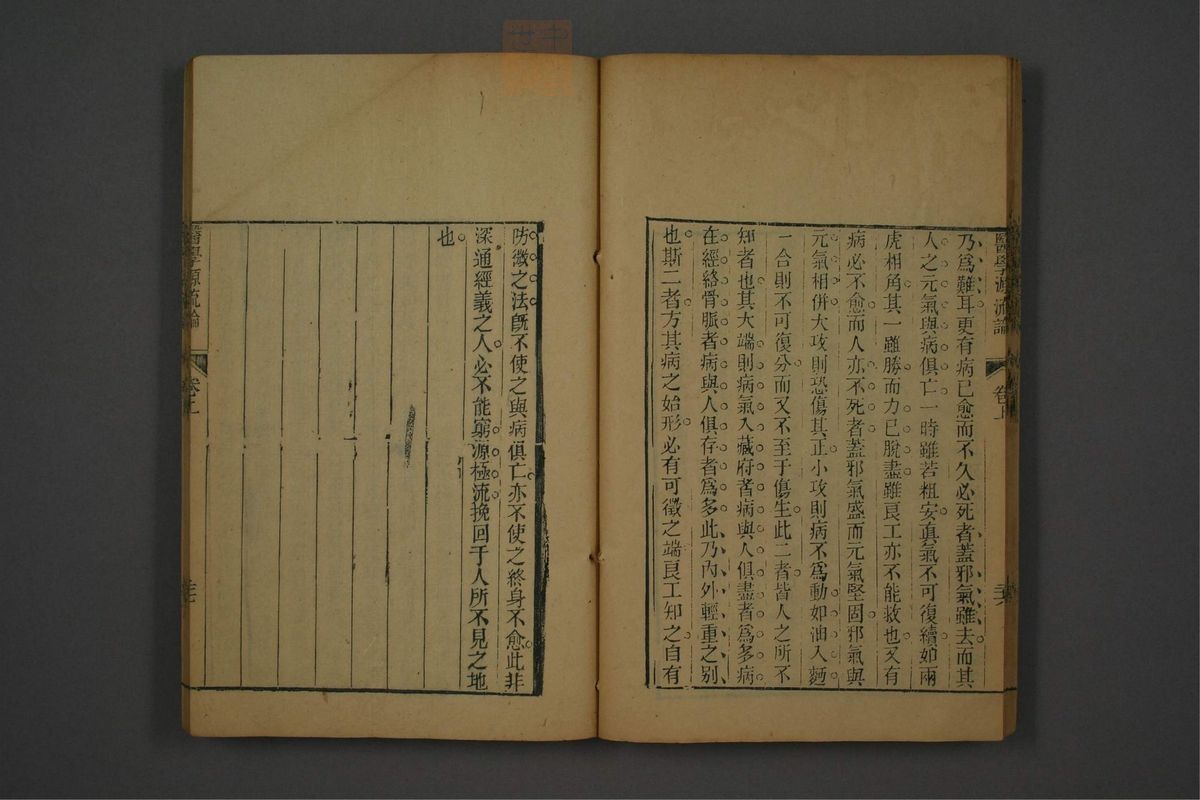 乃爲難耳更有病已愈而不久必死者蓋邪氣雖去而其
人之元氣與病俱亡一時雖若粗安眞氣不可復續如兩
虎相角其一雖勝而力已脫盡雖良工亦不能救也又有
病必不愈而人亦不死者蓋邪氣盛而元氣堅固邪氣與
元氣相併大攻則恐傷其正小攻則病不爲動如油入麵
一合則不可復分而又不至于傷生此二者皆人之所不
知者也其大端則病氣入藏府者病與人俱盡者爲多病
在經絡骨脈者病與人俱存者爲多此乃內外輕重之别
也斯二者方其病之始形必有可徵之端良工知之自有
醫學源流論
卷上
防微之法旣不使之與病俱亡亦不使之終身不愈此非
深通經義之人必不能窮源極流挽回于人所不見之地
也
醫學源流論
卷上